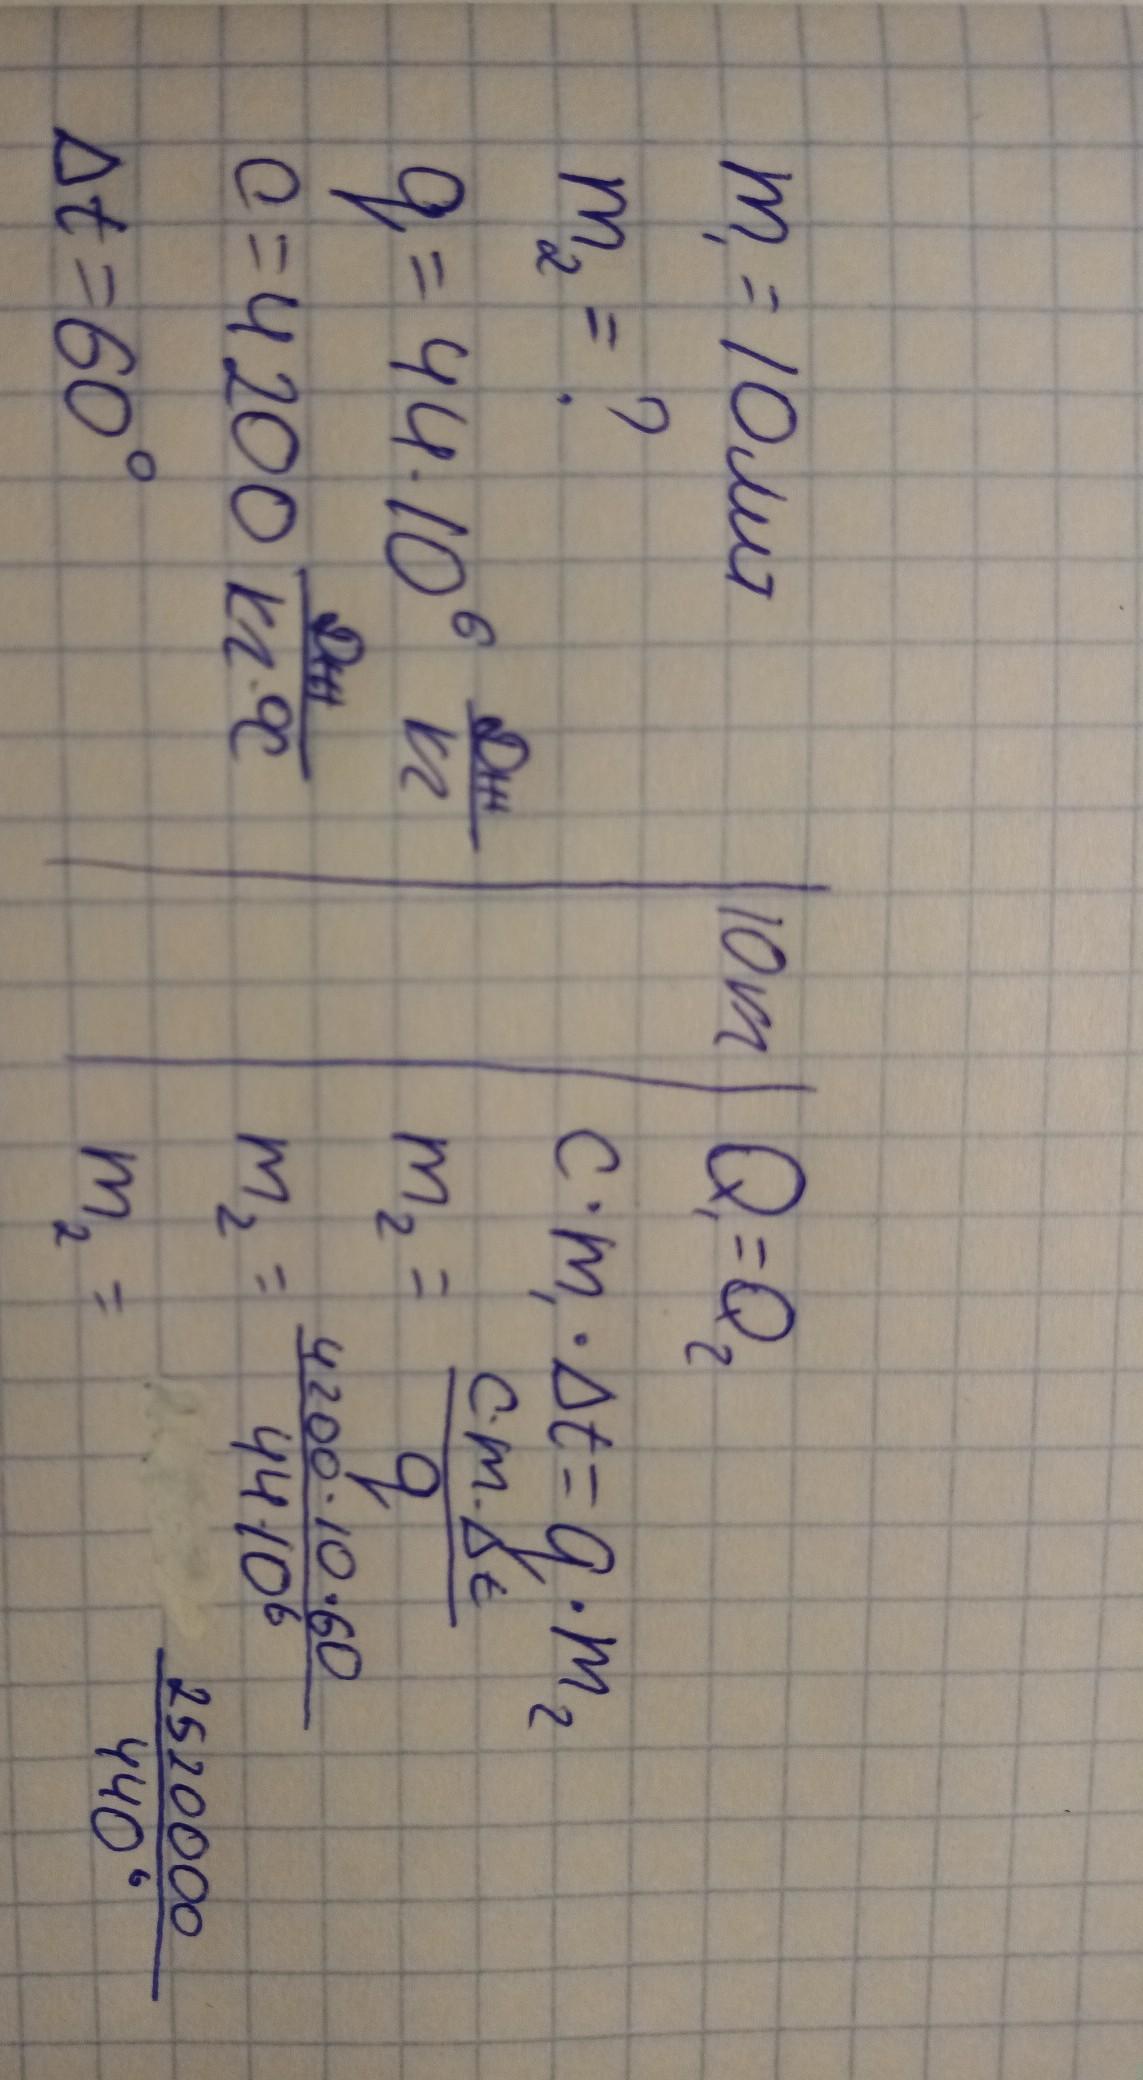 m₁ = 10 лит
m₂ = ?
q = 44·10⁶ Дж/кг
c = 4200 Дж/кг·°C
Δt = 60°
10 m
Q₁ = Q₂
c·m₁·Δt = q·m₂
m₂ = c·m·Δt/q
m₂ = 4200·10·60/44·10⁶
m₂ = 2520000/440⁶